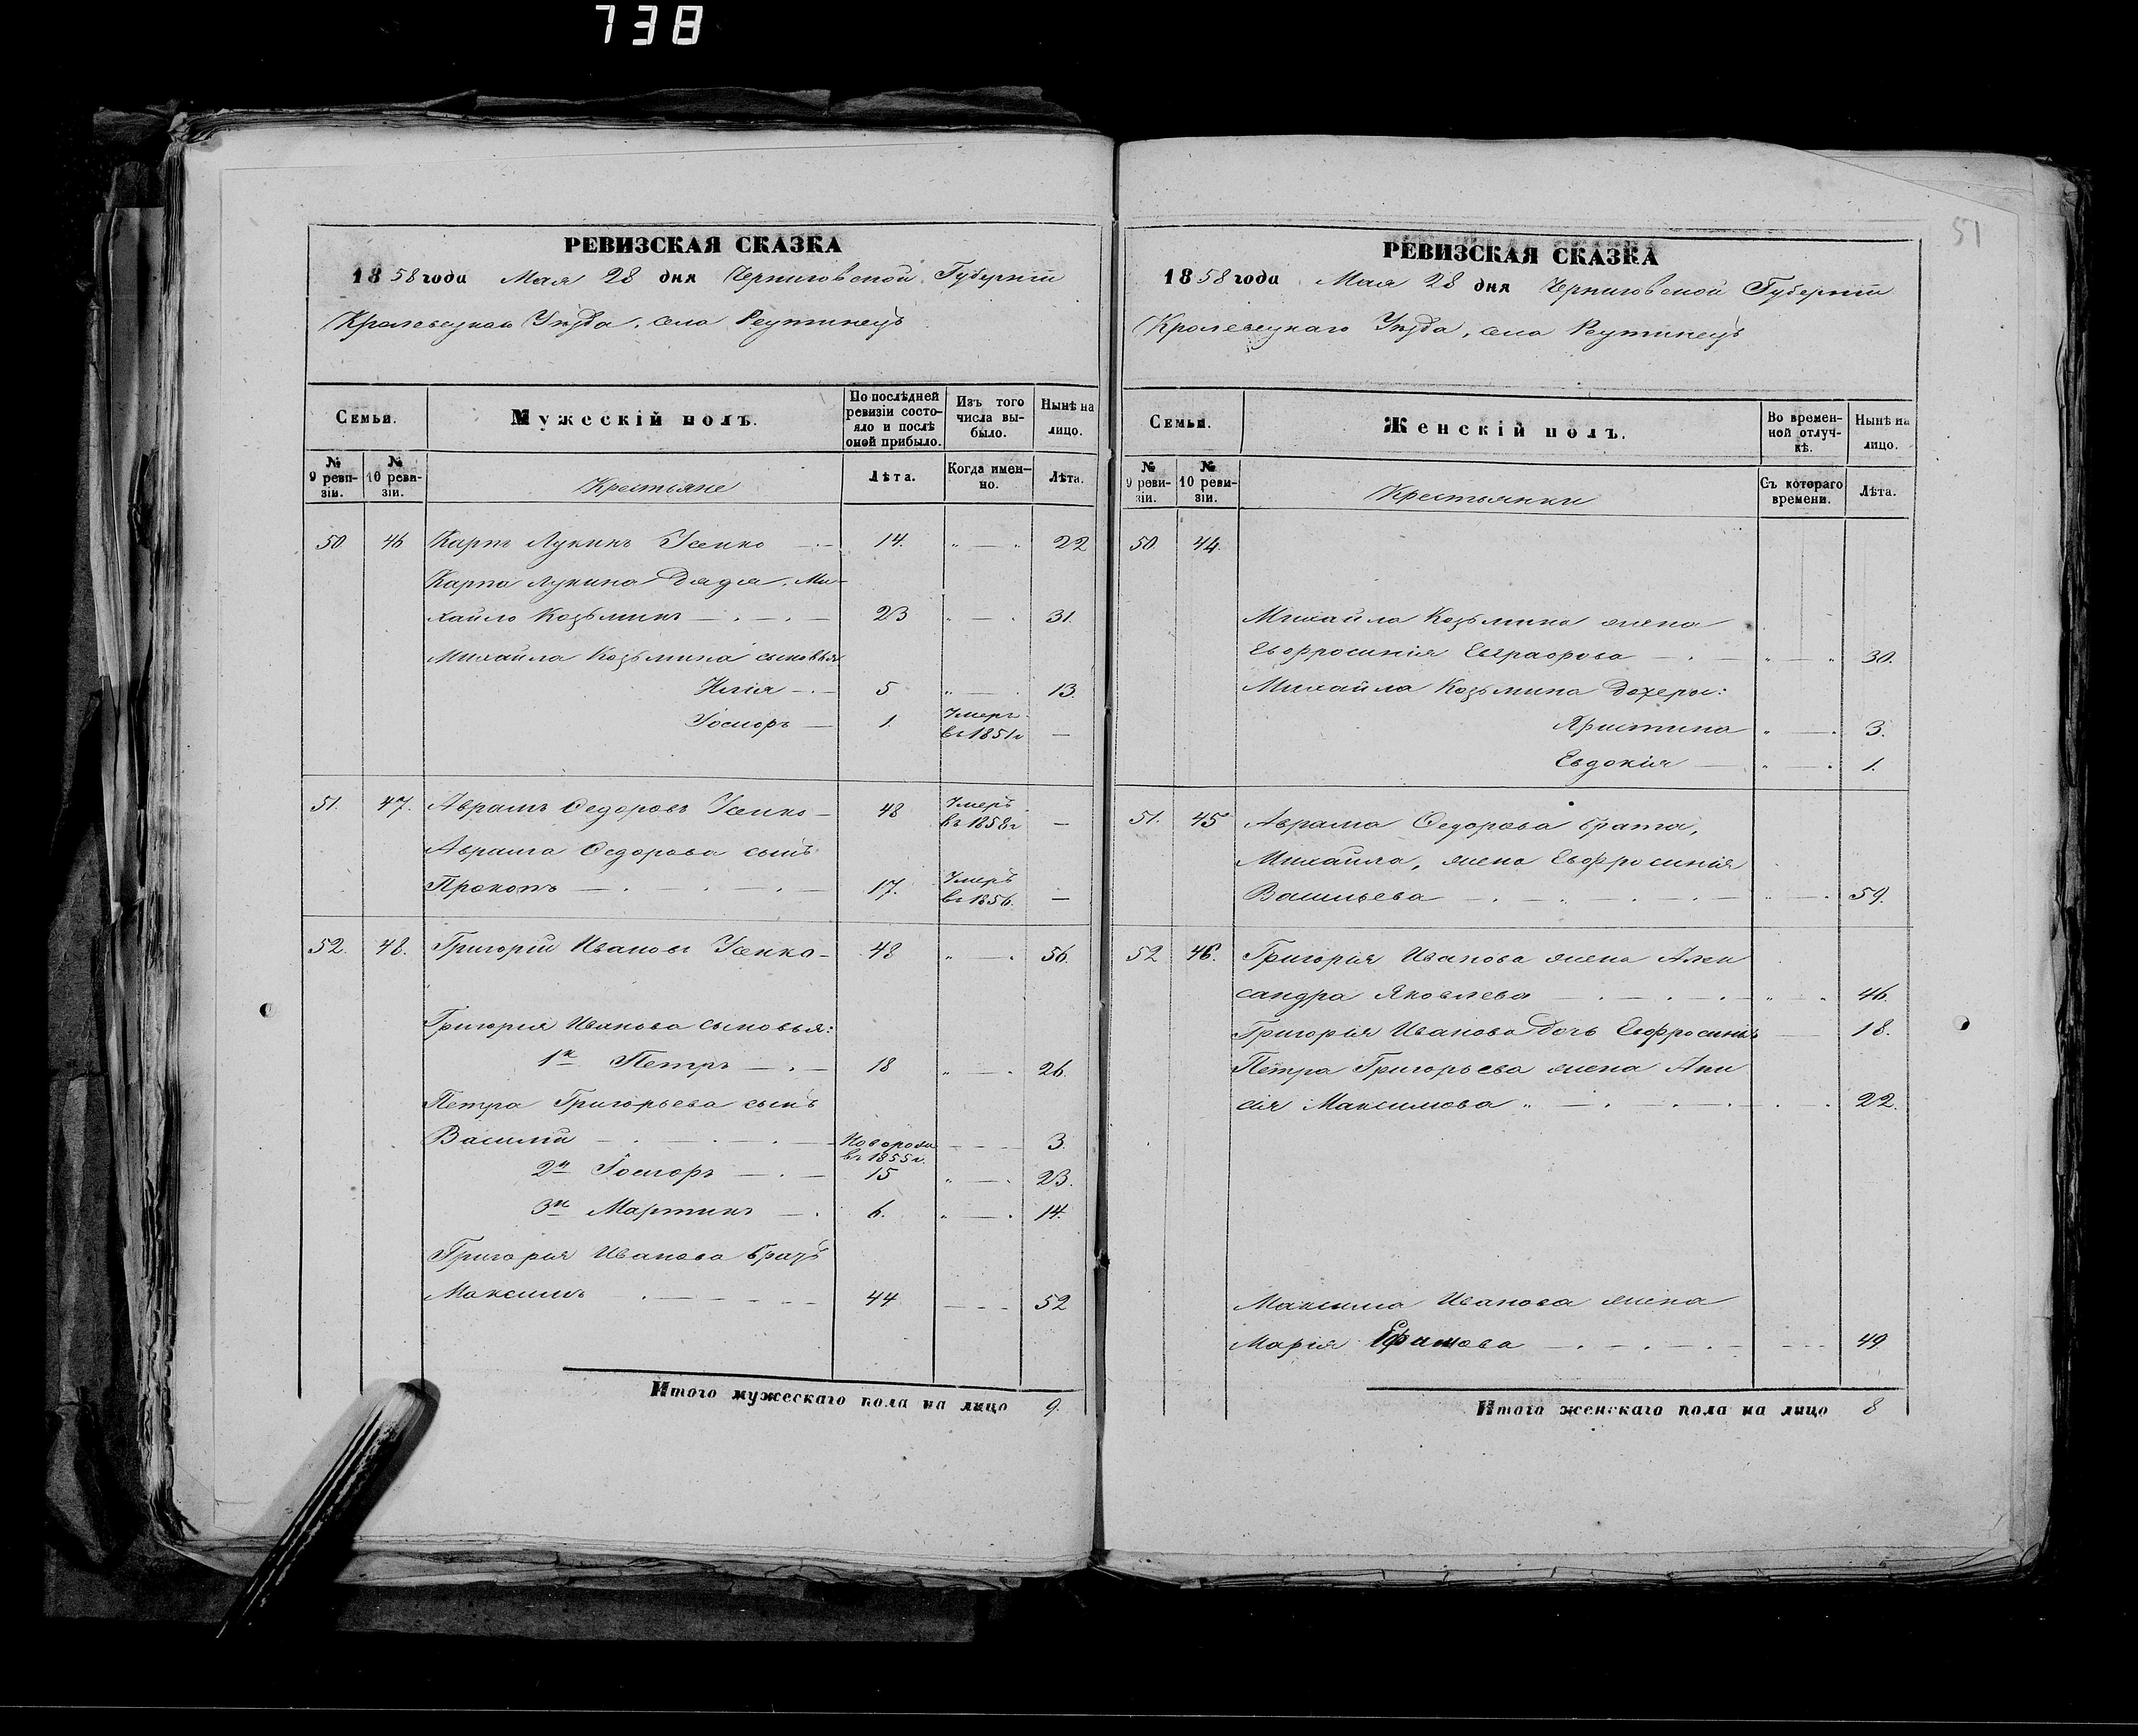 738
РЕВИЗСКАЯ СКАЗКА
1858 года Мая 28 дня Черниговской Губерніи
Кролевецкаго Уѣзда, села Реутинецъ
Семьи.
Мужескій полъ.
По послѣдней ревизіи состояло и послѣ оной прибыло.
Изъ того числа выбыло.
Нынѣ на лицо.
№ 9 ревизіи.
№ 10 ревизіи.
Крестьяне
Лѣта.
Когда именно.
Лѣта.
50 46 Карпъ Лукинъ Усенко 14. 22
Карпа Лукина дядя, Ми-
хайло Козьминъ 23 31.
Михаила Козьмина сыновья
Илія 5 13.
1. Умеръ въ 1851 г —
51. 47. Аврамъ Ѳедоровъ Усенко 48 Умеръ въ 1858 г —
Аврама Ѳедорова сынъ
Прокопъ 17. Умеръ въ 1856. —
52. 48. Григорій Ивановъ Усенко 48 56.
Григорія Иванова сыновья:
1й Петръ 18 26.
Петра Григорьева сынъ
Василій Новорож въ 1855 г. 3.
2й 15 23.
3й Мартинъ 6. 14.
Григорія Иванова братъ
Максимъ 44 52
Итого мужескаго пола на лицо 9.
51
РЕВИЗСКАЯ СКАЗКА
1858 года Мая 28 дня Черниговской Губерніи
Кролевецкаго Уѣзда, села Реутинецъ
Семьи.
Женскій полъ.
Во временной отлучкѣ.
Нынѣ на лицо.
№ 9 ревизіи.
№ 10 ревизіи.
Крестьянки
Съ котораго времени.
Лѣта.
50. 44.
Михайла Козьмина жена
Евфросинія 30.
Михайла Козьмина дочери:
Христина 3.
Евдокія 1.
51. 45 Аврама Ѳедорова брата,
Михайла, жена Евфросинія
Васильева 59.
52 46. Григорія Иванова жена Алек
сандра Яковлева 46.
Григорія Иванова дочь Евфросинія 18.
Петра Григорьева жена Ани
сія Максимова 22.
Максима Иванова жена
Марія Ефимова 49
Итого женскаго пола на лицо 8